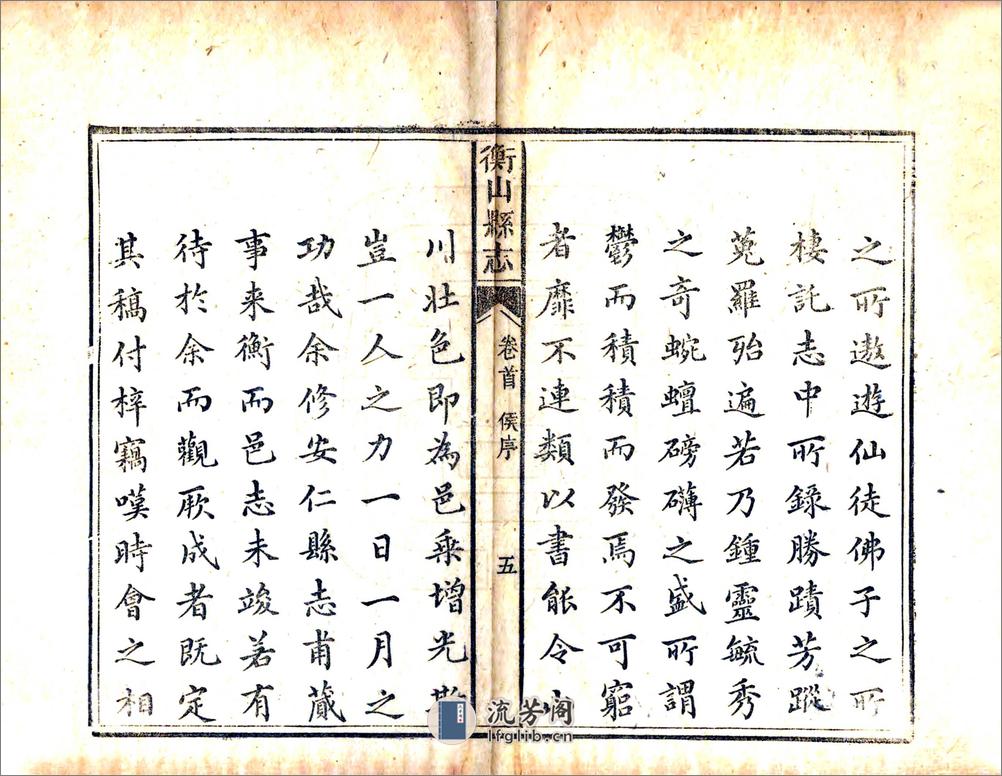 之所遨遊仙徒佛子之所
棲託志中所錄勝蹟芳蹤
蒐羅殆遍若乃鍾靈毓秀
之奇蜿蟺磅礴之盛所謂
鬱而積積而發焉不可窮
者靡不連類以書能令山
衡山縣志
卷首 侯序
五
川壯色即為邑乘增光斯
豈一人之力一日一月之
功哉余修安仁縣志甫蕆
事来衡而邑志未竣若有
待於余而觀厥成者既定
其稿付梓竊嘆時會之相
流芳阁
lfglib.cn